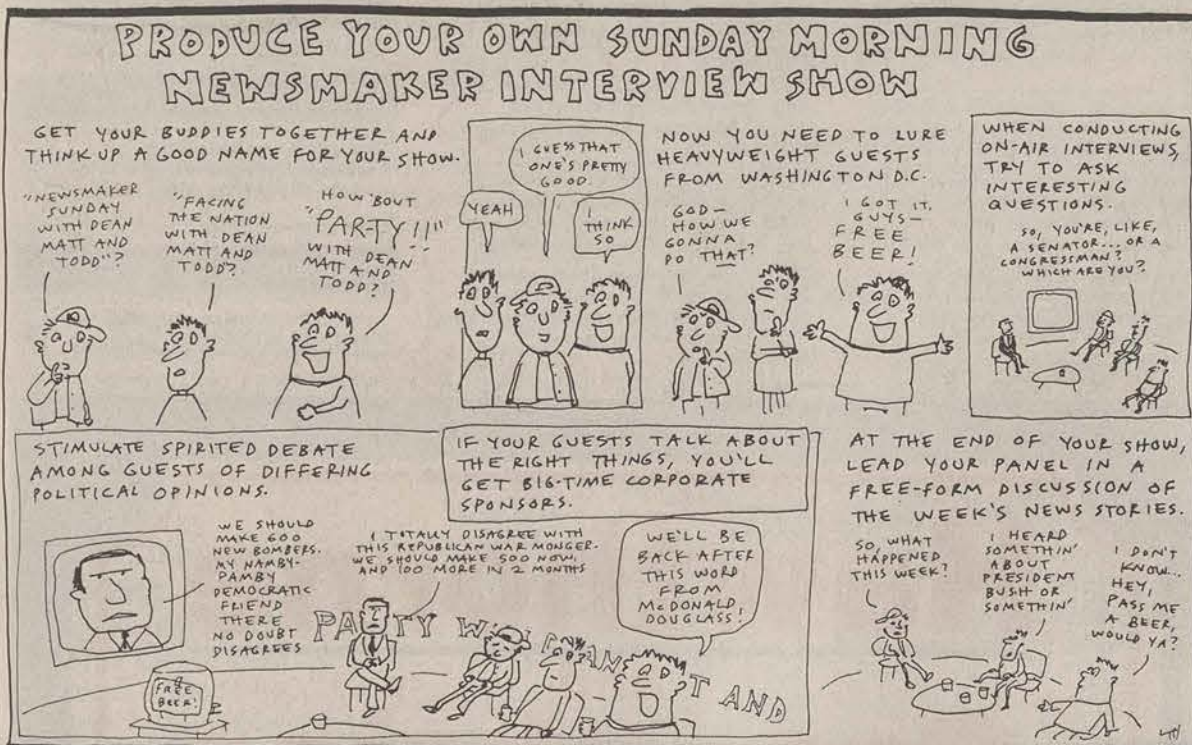 PRODUCE YOUR OWN SUNDAY MORNING
NEWSMAKER INTERVIEW SHOW
GET YOUR BUDDIES TOGETHER AND
THINK UP A GOOD NAME FOR YOUR SHOW.
"NEWSMAKER
SUNDAY
WITH DEAN
MATT AND
TODD"?
"FACING
THE NATION
WITH DEAN
MATT AND
TODD"?
HOW 'BOUT
"PAR-TY!!"
WITH DEAN
MATT AND
TODD?
YEAH
I GUESS THAT
ONE'S PRETTY
GOOD.
I
THINK
SO
NOW YOU NEED TO LURE
HEAVYWEIGHT GUESTS
FROM WASHINGTON D.C.
GOD—
HOW WE
GONNA
DO THAT?
I GOT IT,
GUYS—
FREE
BEER!
WHEN CONDUCTING
ON-AIR INTERVIEWS,
TRY TO ASK
INTERESTING
QUESTIONS.
SO, YOU'RE, LIKE,
A SENATOR... OR A
CONGRESSMAN?
WHICH ARE YOU?
STIMULATE SPIRITED DEBATE
AMONG GUESTS OF DIFFERING
POLITICAL OPINIONS.
WE SHOULD
MAKE 600
NEW BOMBERS.
MY NAMBY-
PAMBY
DEMOCRATIC
FRIEND
THERE
NO DOUBT
DISAGREES
FREE
BEER!
I TOTALLY DISAGREE WITH
THIS REPUBLICAN WAR MONGER.
WE SHOULD MAKE 500 NOW
AND 100 MORE IN 2 MONTHS
IF YOUR GUESTS TALK ABOUT
THE RIGHT THINGS, YOU'LL
GET BIG-TIME CORPORATE
SPONSORS.
WE'LL BE
BACK AFTER
THIS WORD
FROM
McDONALD
DOUGLASS!
AND
AT THE END OF YOUR SHOW,
LEAD YOUR PANEL IN A
FREE-FORM DISCUSSION OF
THE WEEK'S NEWS STORIES.
SO, WHAT
HAPPENED
THIS WEEK?
I HEARD
SOMETHIN'
ABOUT
PRESIDENT
BUSH OR
SOMETHIN'
I DON'T
KNOW...
HEY,
PASS ME
A BEER,
WOULD YA?